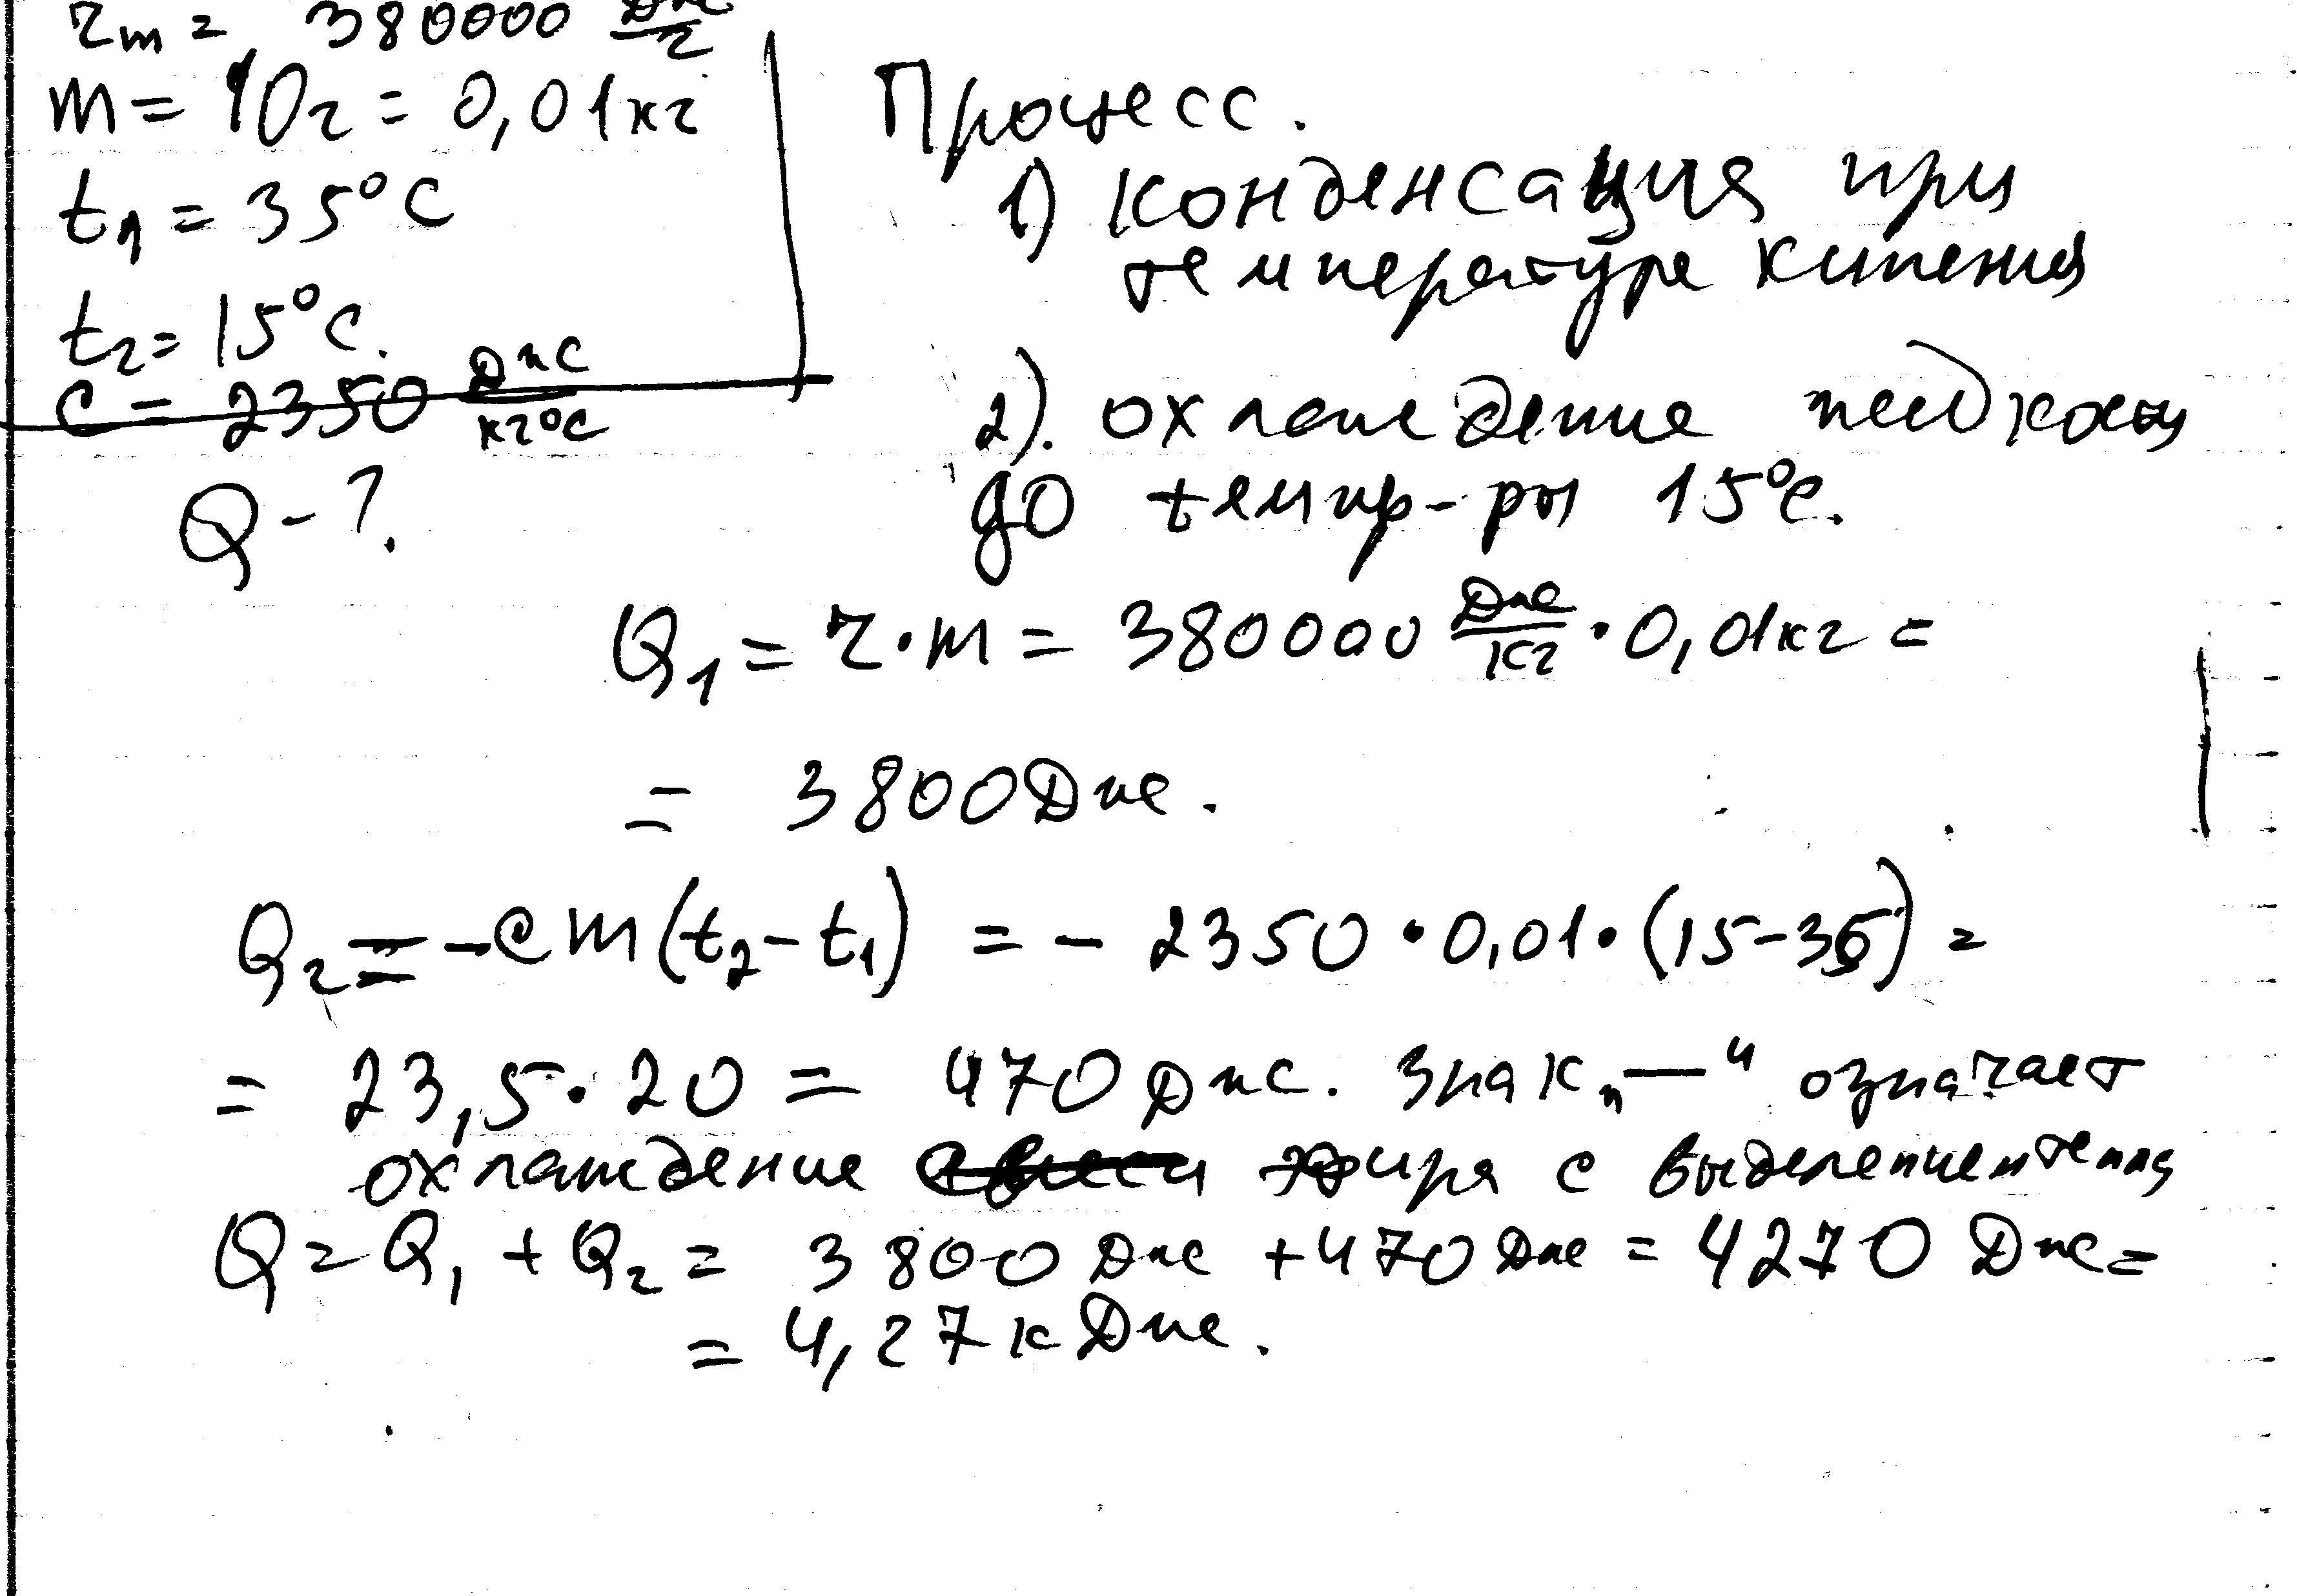 r m = 380000 Дж/г
m = 10г = 0,01кг
t1 = 35°C
t2 = 15°C.
c = 2350 Дж/кг°C
Q - ?.
Процесс.
1) конденсация при
температуре кипения
2). охлаждение жидкости
до темпр-ры 15°C.
Q1 = r·m = 380000 Дж/кг · 0,01кг =
= 3800 Дж.
Q2 = -cm(t2 - t1) = - 2350 · 0,01 · (15-35) =
= 23,5 · 20 = 470 Дж. Знак „—" означает
охлаждение эфира с выделением тепла
Q = Q1 + Q2 = 3800 Дж + 470 Дж = 4270 Дж =
= 4,27 кДж.